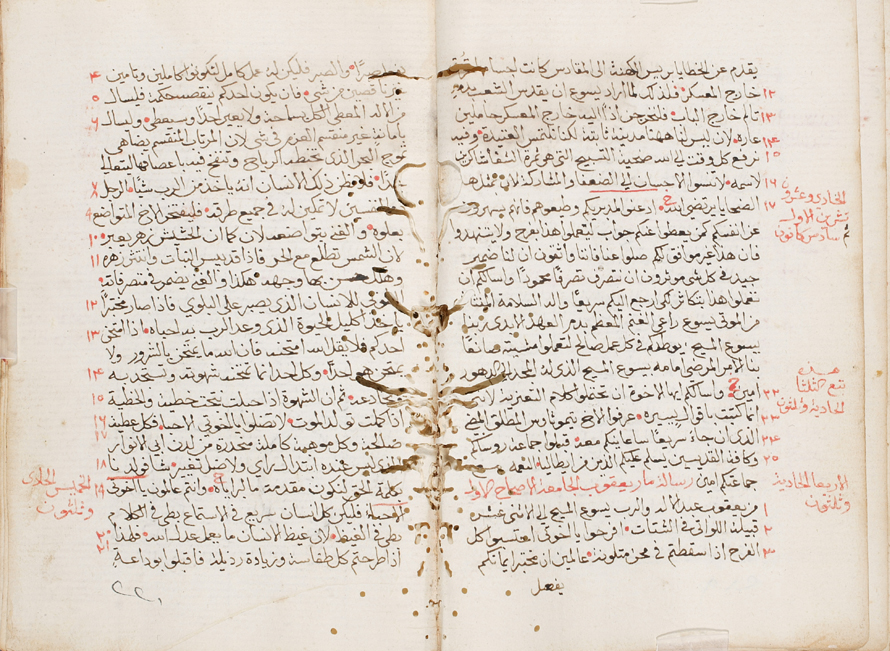 يقدم عن الخطايا بريس الكهنة الى المقادس كانت اجسامها تحرق
١٢ خارج المعسكر فلذلك لما اراد يسوع ان يقدس الشعب بدمه
١٣ تالم خارج الباب فلنخرج اذًا اليه خارج المعسكر حاملين
١٤ عاره لان ليس لنا ههنا مدينة ثابتة لكنا نلتمس العتيدة وفيه
١٥ نرفع كل وقت لله ضحية التسبيح التي هي ثمرة الشفاة الشاكرين
١٦ لاسمه لا تنسوا الاحسان الى الضعفا والمشاركة لان بمثل هذه
١٧ الضحايا يرتضي الله اذعنوا لمدبريكم وطيعوهم فانهم يسهرون
عن انفسكم كمن يعطوا عنكم جواب ليفعلوا هذا بفرح ولا يتنهدوا
فان هذا غير موافق لكم صلوا عنا فاننا واثقون ان لنا ضمير
جيد في كل شي موثرون ان نتصرف تصرفًا محمودًا واسالكم ان
تفعلوا هذا بتكاثر كي ارجع اليكم سريعًا واله السلامة
من الموتى يسوع راعي الغنم المعظم بدم العهد الابدي ربنا
يسوع المسيح يوطدكم في كل عمل صالح لتعملوا مشيته صانعًا
بنا الامر المرضي امامه يسوع المسيح الذي له المجد الى دهر الدهور
٢٢ امين واسالكم ايها الاخوة ان تحتملوا كلام التعزية لاني
٢٣ انما كتبت باقوال يسيرة اعرفوا الاخ تيموتاوس المطلق
٢٤ الذي ان جاء سريعًا ساعاينكم معه قبلوا جماعة روساكم
٢٥ وكافة القديسين يسلم عليكم الذين من ايطاليا النعمة مع
جماعتكم امين رسالة مار يعقوب الجامعة الاصحاح الاول
١ من يعقوب عبد الاله والرب يسوع المسيح الى الاثني عشره
٢ قبيلة اللواتي في الشتات افرحوا يا اخوتي احتسبوا كل
٣ الفرح اذا سقطتم في محن متلونة عالمين ان مختبر ايمانكم
يفعل
الحادي وعشرون
تشرين الاول
سادس كانون
الاربعا الحادية
وثلثون
٤ يفعل صبرًا والصبر فليكن له عمل كامل لتكونوا كاملين وتامين
٥ غير ناقصين من شي فان يكون احدكم تنقصه حكمة فليسال
٦ من الاله المعطي الكل بسماحة ولا يعير احدًا وسيعطى وليسال
بامانة غير منقسم العزم في شي لان المرتاب المنقسم يضاهي
موج البحر الذي تختطفه الرياح
هذا فلا يظن ذلك الانسان انه ياخذ من الرب شيًا الرجل ٨
٩ نفسين لا تمكين له في جميع طرقه فليفتخر الاخ المتواضع
١٠ بعلوه والغني بتواضعه لان كما ان الحشيش زهره يعبر
١١ لان الشمس تطلع مع الحر فاذا قد يبس النبات وانتثر زهره
وهلك حسن بها وجهه هكذا والغني يضمر في متصرفاته
١٢ طوبى للانسان الذي يصبر على البلوي فاذا صار مختبرًا
١٣ ياخذ اكليل الحيوة الذي وعد الرب به احباه اذا امتحن
احدكم فلا يقل الله امتحنني فان الله ما يمتحن بالشرور ولا
١٤ يمتحن هو احدًا وكل احد انما تمتحنه شهوته وتستجذبه
١٥ وتخادعه ثم ان الشهوة اذا حبلت تنتج خطيئة والخطية
١٦ اذا كملت تولد الموت لا تضلوا يا اخوتي الاحبا فكل عطية
١٧ صالحة وكل موهبة كاملة منحدرة من لدن ابي الانوار
١٨ الذي ليس عنده ابتدال ولا ضل تغير شا فولدنا
١٩ بكلمة الحق لنكون مقدمة براياه وانتم عالمون يا اخوتي
الاحبا فليكن كل انسان سريع في الاستماع بطي في الكلام
٢٠ بطي في الغيظ لان غيظ الانسان ما يعمل عدل الله فلهذا
٢١ اذ اطرحتم كل طفاسة وزيادة رذيلة فاقبلوا بوداعة
الخميس الحادي
وثلثون